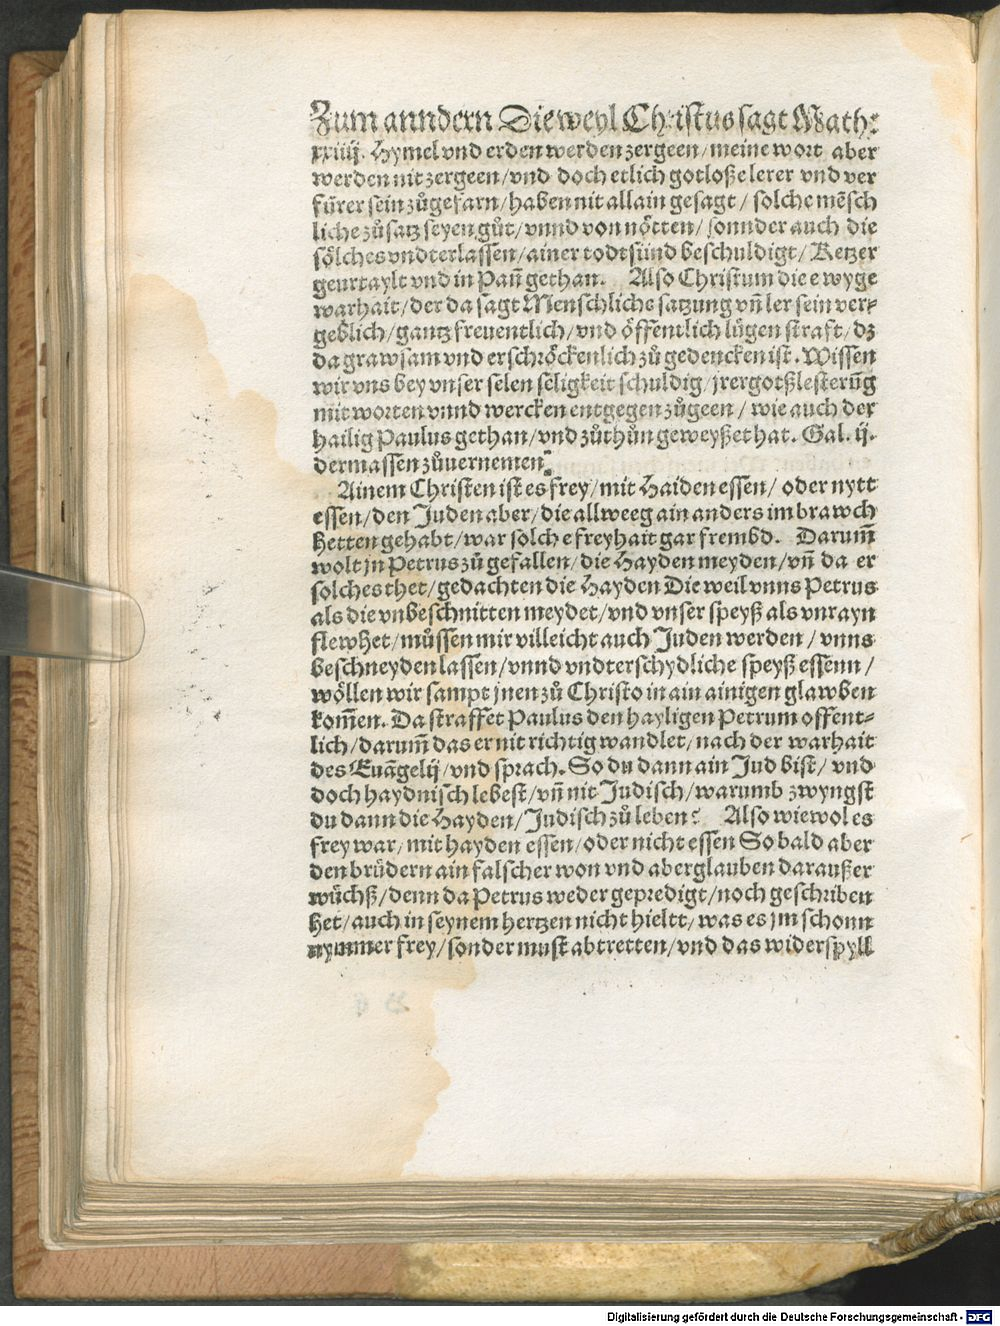 Zum anndern Die weyl Christus sagt Math:
xxiiij. Hymel vnd erden werden zergeen/meine wort aber
werden nit zergeen/vnd doch etlich gotloße lerer vnd ver
fürer sein zůgefarn/haben nit allain gesagt/solche mēsch
liche zůsatz seyen gůt/vnnd von nötten/sonnder auch die
sölches vndterlassen/ainer todtsünd beschuldigt/Ketzer
geurtaylt vnd in Pañ gethan. Also Christum die ewyge
warhait/der da sagt Menschliche satzung vñ ler sein ver⸗
geblich/gantz freuentlich/vnd öffentlich lügen straft/dz
da grawsam vnd erschröckenlich zů gedencken ist. Wissen
wir vns bey vnser selen seligkeit schuldig/jrer gotßlesterūg
mit worten vnnd wercken entgegen zůgeen/wie auch der
hailig Paulus gethan/vnd zůthůn geweyßet hat. Gal. ij.
dermassen zůuernemen.
Ainem Christen ist es frey/mit Haiden essen/oder nytt
essen/den Juden aber/die allweeg ain anders im brawch
hetten gehabt/war solche freyhait gar frembd. Darum̄
wolt jn Petrus zů gefallen/die Hayden meyden/vñ da er
solches thet/gedachten die Hayden Die weil vnns Petrus
als die vnbeschnitten meydet/vnd vnser speyß als vnrayn
flewhet/můssen mir villeicht auch Juden werden/vnns
beschneyden lassen/vnnd vndterschydliche speyß essenn/
wöllen wir sampt jnen zů Christo in ain ainigen glawben
kom̄en. Da straffet Paulus den hayligen Petrum offent⸗
lich/darum̄ das er nit richtig wandlet/nach der warhait
des Euāgelij/vnd sprach. So du dann ain Jud bist/vnd
doch haydnisch lebest/vñ nit Judisch/warumb zwyngst
du dann die Hayden/Judisch zů leben? Also wiewol es
frey war/mit hayden essen/oder nicht essen So bald aber
den brüdern ain falscher won vnd aberglauben daraußer
wüchß/denn da Petrus weder gepredigt/noch geschriben
het/auch in seynem hertzen nicht hieltt/was es jm schonn
nymmer frey/sonder must abtretten/vnd das widerspyll
Digitalisierung gefördert durch die Deutsche Forschungsgemeinschaft - DFG